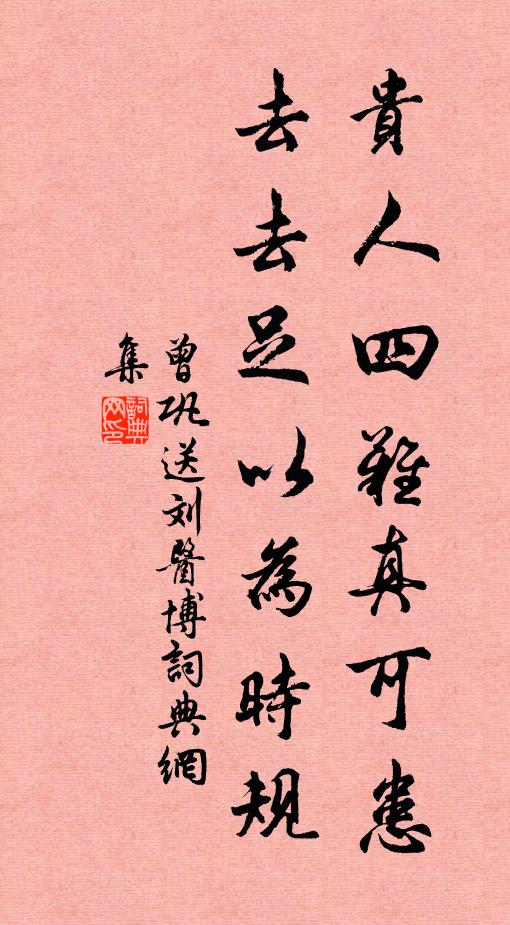 貴人四難真可患
去去足以為時規
曾巩送刘醫博詞典網
集
詞典网印